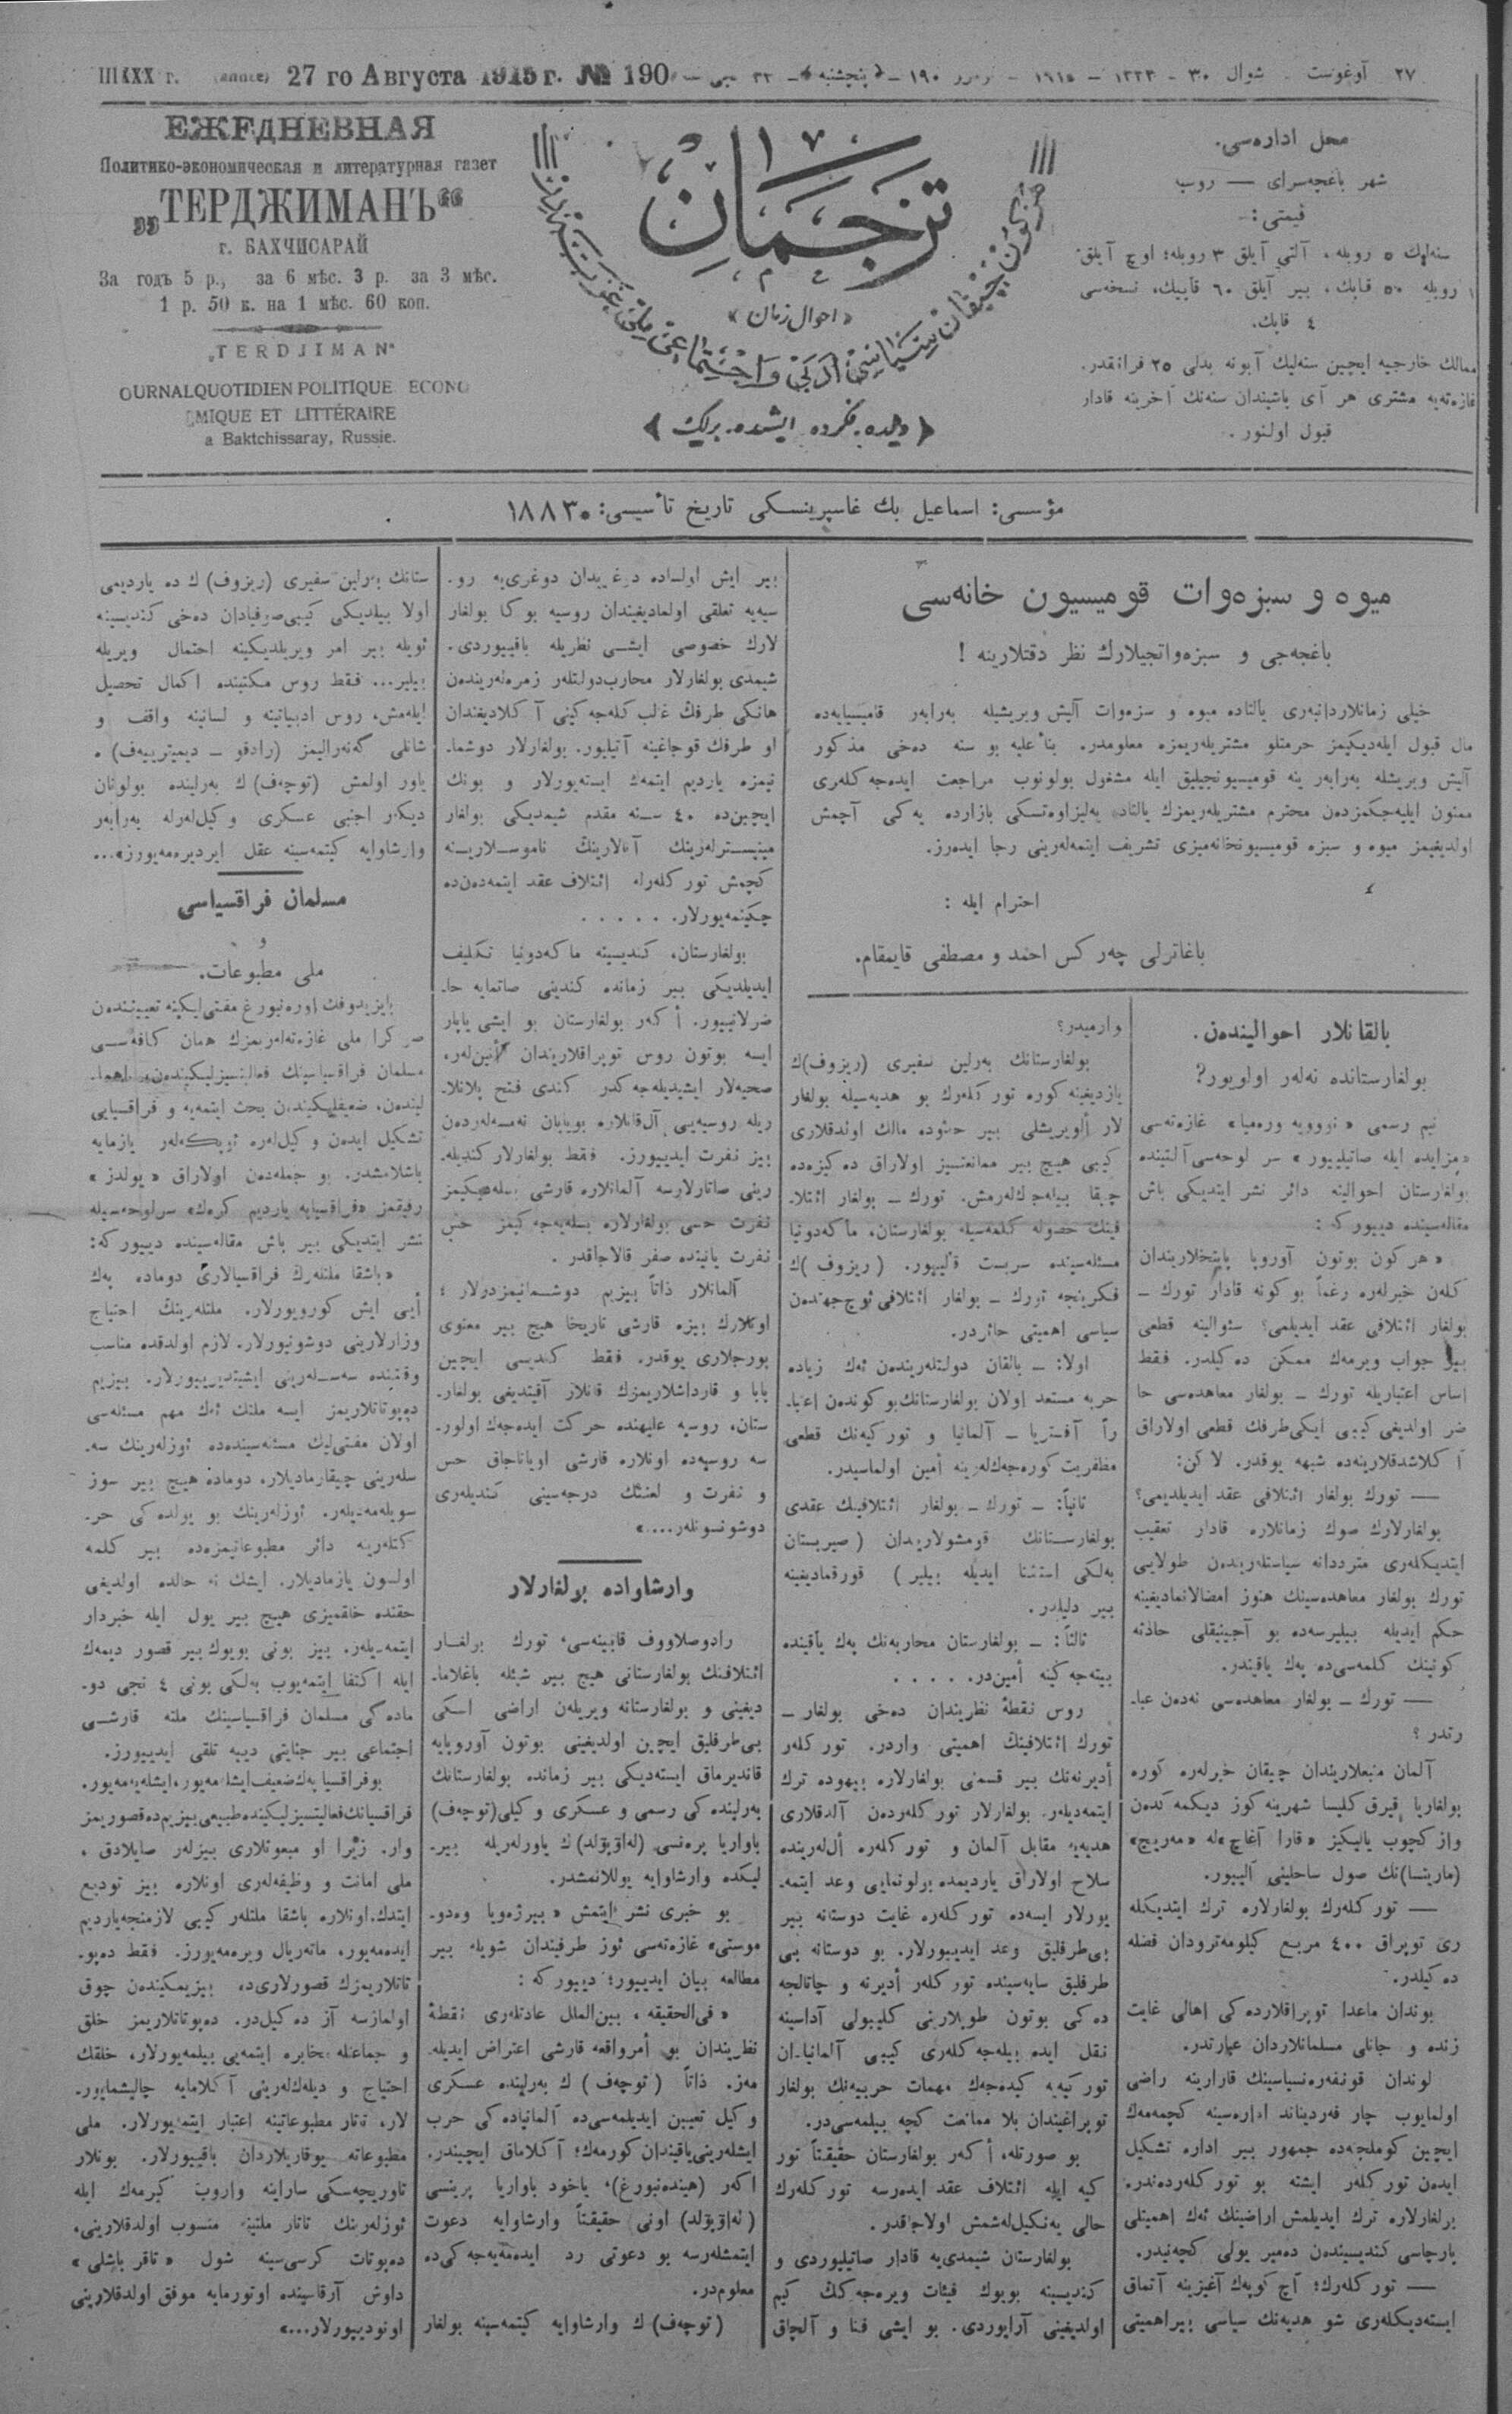 ХХХIII г. (année) 27 го Августа 1915 г. № 190
٢٧ آوغوست - شوال ٣٠ - ١٣٣٣ - ١٩١٥ - نومرو ١٩٠ - پنچشنبه - ٣٣
ЕЖЕДНЕВНАЯ
Политико-экономическая и литературная газет
„ТЕРДЖИМАНЪ“
г. БАХЧИСАРАЙ
За годъ 5 р., за 6 мѣс. 3 р. за 3 мѣс.
1 р. 50 к. на 1 мѣс. 60 коп.
„TERDJIMAN“
OURNAL QUOTIDIEN POLITIQUE ECONO
MIQUE ET LITTÉRAIRE
a Baktchissaray, Russie.
ترجمان
« احوال زمان »
« ديلده، فكرده، ايشده، برلك »
محل اداره‌سی.
شهر باغچه‌سرای — روب
قيمتی:-
سنه‌لك ٥ روبله، آلتی آيلق ٣ روبله؛ اوچ آيلق
١ روبله ٥٠ قاپك، بير آيلق ٦٠ قاپيك، نسخه‌سی
٤ قاپك.
ممالك خارجيه ايچين سنه‌ليك آبونه بدلی ٢٥ فرانقدر.
غازه‌ته‌يه مشتری هر آی باشيندان سنه‌نك آخرينه قادار
قبول اولنور.
مؤسسی: اسماعيل بك غاسپرينسكی تاريخ تأسيسی: ١٨٨٣
ميوه و سبزه‌وات قوميسيون خانه‌سی
باغچه‌جی و سبزه‌واتجيلارك نظر دقتلارينه !
خيلی زمانلاردانبه‌ری يالتاده ميوه و سبزه‌وات آليش ويريشيله به‌رابه‌ر قاميسيايه‌ده
مال قبول ايله‌ديكيمز حرمتلو مشتريله‌ريمزه معلومدر. بناً عليه بو سنه ده‌خی مذكور
آليش ويريشله به‌رابه‌ر ينه قوميسيونجيليق ايله مشغول بولونوب مراجعت ايده‌جه‌كله‌ری
ممنون ايليه‌جكمزده‌ن محترم مشتريله‌ريمزك يالتاده به‌ليزاوه‌تسكی بازارده يه‌كی آچمش
اولديغيمز ميوه و سبزه قوميسيونخانه‌ميزی تشريف ايتمه‌له‌رينی رجا ايده‌رز.
احترام ايله :
باغاترلی چه‌ركس احمد و مصطفی قايمقام.
بالقانلار احوالينده‌ن.
بولغارستانده نه‌له‌ر اولويور؟
نيم رسمی « نووويه وره‌ميا » غازه‌ته‌سی
« مزايده ايله صاتيليور » سر لوحه‌سی آلتينده
بولغارستان احوالينه دائر نشر ايتديكی باش
مقاله‌سينده دييوركه :
« هر كون بوتون آوروپا پايتخلاريندان
كله‌ن خبرله‌ره رغماً بو كونه قادار تورك ــ
بولغار ائتلافی عقد ايديلمی؟ سئوالينه قطعی
بير جواب ويرمه‌ك ممكن ده‌كيلدر. فقط
اساس اعتباريله تورك ــ بولغار معاهده‌سی حا
ضر اولديغی كيبی ايكی طرفك قطعی اولاراق
آكلاشدقلارينه‌ده شبهه يوقدر. لاكن:
— تورك بولغار ائتلافی عقد ايديلديمی؟
بولغارلارك صوك زمانلاره قادار تعقيب
ايتديكله‌ری مترددانه سياستله‌ريندن طولايی
تورك بولغار معاهده‌سينك هنوز امضالانماديغينه
حكم ايديله بيليرسه‌ده بو آجينيقلی حادثه
كونينك كلمه‌سی‌ده يه‌ك ياقيندر.
— تورك ــ بولغار معاهده‌سی نه‌دن عبا-
رتدر ؟
آلمان منبعلاريندان چيقان خبرله‌ره كوره
بولغاريا قيرق كليسا شهرينه كوز ديكمه‌كدن
واز كچوب يالكيز « قارا آغاچ »له « مه‌ريج »
(ماريتسا)نك صول ساحلينی آليبور.
— توركله‌رك بولغارلاره ترك ايتديكله
ری توپراق ٤٠٠ مربع كيلومه‌ترودان فضله
ده‌كيلدر.
بوندان ماعدا توپراقلارده‌كی اهالی غايت
زنده و جانلی مسلمانلاردان عبارتدر.
لوندان قونفه‌ره‌نسياسينك قارارينه راضی
اولمايوب چار فه‌رديناند اداره‌سينه كچمه‌مه‌ك
ايچين كوملجه‌ده جمهور بير اداره تشكيل
ايدن توركله‌ر ايشته بو توركله‌رده‌ندر.
بولغارلاره ترك ايديلمش اراضينك ئه‌ك اهميتلی
پارچاسی كنديسيندن ده‌مير يولی كچه‌نيدر.
— توركله‌رك؛ آچ كوپه‌ك آغيزينه آتماق
ايسته‌ديكله‌ری شو هديه‌نك سياسی بير اهميتی
وارميدر؟
بولغارستانك به‌رلين سفيری (ريزوف)ك
يازديغينه كوره توركله‌رك بو هديه‌سيله بولغار
لار ألويريشلی بير حدوده مالك اولدقلاری
كيبی هيچ بير ممانعتسيز اولاراق ده‌كيزه‌ده
چيقا بيله‌جه‌كله‌رمش. تورك ــ بولغار ائتلا-
فينك حصوله كلمه‌سيله بولغارستان، ماكه‌دونيا
مسئله‌سينده سربست قاليبور. (ريزوف)ك
فكرينجه تورك ــ بولغار ائتلافی اوچ جهتدن
سياسی اهميتی حائردر.
اولا: ــ بالقان دولتله‌ريندن ئه‌ك زياده
حربه مستعد اولان بولغارستانك بو كونده‌ن اعتبا-
راً آفستريا ــ آلمانيا و توركيه‌نك قطعی
مظفريت كوره‌جه‌كله‌رينه أمين اولماسيدر.
ثانياً: ــ تورك ــ بولغار ائتلافينك عقدی
بولغارستانك قومشولاريندان (صيربستان
به‌لكی استثنا ايديله بيلير) قورقماديغينه
بير دليلدر.
ثالثاً: ــ بولغارستان محاربه‌نك يه‌ك ياقينده
بيته‌جه‌كينه أمين‌در. . . . . .
روس نقطهٔ نظريندان ده‌خی بولغار ــ
تورك ائتلافينك اهميتی واردر. توركله‌ر
أديرنه‌نك بير قسمنی بولغارلاره بيهوده ترك
ايتمه‌ديله‌ر. بولغارلار توركله‌ردن آلدقلاری
هديه‌يه مقابل آلمان و توركله‌ره أل‌له‌رينده
سلاح اولاراق يارديمده بولونمايی وعد ايتمه-
يورلار ايسه‌ده توركله‌ره غايت دوستانه بير
بی‌طرفليق وعد ايديبورلار. بو دوستانه بی
طرفليق سايه‌سينده توركله‌ر أديرنه و چاتالجه
ده‌كی بوتون طوپلارينی كليبولی آداسينه
نقل ايده بيله‌جه‌كله‌ری كيبی آلمانيادان
توركيه‌يه كيده‌جه‌ك مهمات حربيه‌نك بولغار
توپراغيندان بلا ممانعت كچه بيلمه‌سی‌در.
بو صورتله، أكه‌ر بولغارستان حقيقتاً تور
كيه ايله ائتلاف عقد ايده‌رسه توركله‌رك
حالی يه‌نكيل‌له‌شمش اولاجاقدر.
بولغارستان شيمدی‌يه قادار صاتيليوردی و
كنديسينه بويوك فيئات ويره‌جه‌كك كيم
اولديغينی آرايوردی. بو ايشی فنا و آلچاق
بير ايش اولسه‌ده دوغريدان دوغری‌يه رو-
سيه‌يه تعلقی اولماديغيندان روسيه بوكا بولغار
لارك خصوصی ايشی نظريله باقيبوردی.
شيمدی بولغارلار محارب دولتله‌ر زمره‌له‌ريندن
هانكی طرفك غالب كله‌جه‌كينی آكلاديغندان
او طرفك قوجاغينه آتيليور. بولغارلار دوشما-
نيمزه يارديم ايتمه‌ك ايسته‌يورلار و بونك
ايچين‌ده ٤٠ سنه مقدم شيمديكی بولغار
مينيسترله‌رينك آنالارينك ناموسلارينه
كچمش توركله‌رله ائتلاف عقد ايتمه‌ده‌ن‌ده
چكينمه‌يورلار. . . . . . .
بولغارستان، كنديسينه ماكه‌دونيا تكليف
ايديلديكی بير زمانده كندينی صاتمايه حا-
ضرلانييور. أكه‌ر بولغارستان بو ايشی ياپار
ايسه بوتون روس توپراقلاريندان
صحيه‌لار ايشيديله‌جه‌كدر كندی فتح پلانلا-
ريله روسيه‌يی آل‌قانلاره بويايان نه‌مسه‌له‌ردن
بيز نفرت ايدييورز. فقط بولغارلار كنديله-
رينی صاتارلارسه آلمانلاره قارشی بسله‌ديكيمز
نفرت حسی بولغارلاره بسله‌يه‌جه‌كيمز حس
نفرت يانينده صفر قالاجاقدر.
آلمانلار ذاتاً بيزيم دوشمانيمزدرلار؛
اونلارك بيزه قارشی تاريخا هيچ بير معنوی
بورجلاری يوقدر. فقط كنديسی ايچين
بابا و قارداشلاريمزك قانلار آقيتديغی بولغار-
ستان، روسيه عليهنده حركت ايده‌جه‌ك اولور-
سه روسيه‌ده اونلاره قارشی اوياناجاق حس
و نفرت و لعنتك درجه‌سينی كنديله‌ری
دوشونسونله‌ر.... »
وارشاواده بولغارلار
رادوصلاووف قابينه‌سی، تورك بولغار
ائتلافنك بولغارستانی هيچ بير شيئله باغلاما-
ديغينی و بولغارستانه ويريله‌ن اراضی اسكی
بی‌طرفليق ايچين اولديغينی بوتون آوروپايه
قانديرماق ايسته‌ديكی بير زمانده بولغارستانك
به‌رلينده‌كی رسمی و عسكری وكيلی (توچه‌ف)
باواريا پره‌نسی (له‌اوپولد)ك ياورله‌ريله بير-
ليكده وارشاوايه يوللانمشدر.
بو خبری نشر ايتمش « بيرژه‌ويا وه‌دو-
موستی » غازه‌ته‌سی ئوز طرفيندان شويله بير
مطالعه بيان ايدييور؛ دييوركه :
« فی‌الحقيقه، بين‌الملل عادتله‌ری نقطهٔ
نظريندان بو أمرواقعه قارشی اعتراض ايديله-
مه‌ز. ذاتاً (توچه‌ف)ك به‌رلينده عسكری
وكيل تعيين ايديلمه‌سی‌ده آلمانياده‌كی حرب
ايشله‌رينی ياقيندان كورمه‌ك؛ آكلاماق ايچيندر.
اكه‌ر (هينده‌نبورغ)، ياخود باواريا پرينسی
(له‌اوپولد) اونی حقيقتاً وارشاوايه دعوت
ايتمشله‌رسه بو دعوتی رد ايده‌مه‌يه‌جه‌كی‌ده
معلوم‌در.
(توچه‌ف)ك وارشاوايه كيتمه‌سينه بولغار
ستانك به‌رلين سفيری (ريزوف)ك ده يارديمی
اولا بيلديكی كيبی صوفيادان ده‌خی كنديسينه
ئويله بير امر ويريلديكينه احتمال ويريله
بيلير... فقط روس مكتبنده اكمال تحصيل
ايله‌مش، روس ادبياتينه و لسانينه واقف و
شانلی گه‌نه‌راليمز (رادقو ــ ديميترييه‌ف)ه
ياور اولمش (توچه‌ف)ك به‌رلينده بولونان
ديكر اجنبی عسكری وكيل‌له‌رله به‌رابه‌ر
وارشاوايه كيتمه‌سينه عقل ايرديره‌مه‌يورز»...
مسلمان فراقسياسی
و
ملی مطبوعات.
بايزيدوفك اوره‌نبورغ مفتی‌ليكينه تعييننده‌ن
صوكرا ملی غازه‌ته‌له‌ريمزك همان كافه‌سی
مسلمان فراقسياسينك فعاليتسيزليكيندن، اهما-
لينده‌ن، ضعيفليكيندن بحث ايتمه‌يه و فراقسيايی
تشكيل ايدن وكيل‌له‌ره ئوپكه‌له‌ر يازمايه
باشلامشدر. بو جمله‌ده‌ن اولاراق « يولدز »
رفيقمز « فراقسيايه يارديم كره‌ك » سرلوحه‌سيله
نشر ايتديكی بير باش مقاله‌سينده دييوركه:
« باشقا ملتله‌رك فراقسيالاری دوماده يه‌ك
أيی ايش كورويورلار. ملتله‌رينك احتياج
وزارلارينی دوشونيورلار. لازم اولدقده مناسب
وقتينده سه‌سله‌رينی ايشيتديريبورلار. بيزيم
ده‌پوتاتلاريمز ايسه ملتك ئه‌ك مهم مسئله‌سی
اولان مفتی‌ليك مسئه‌سينده‌ده ئوزله‌رينك سه-
سله‌رينی چيقارماديلار. دوماده هيچ بير سوز
سويله‌مه‌ديله‌ر. ئوزله‌رينك بو يولده‌كی حر-
كتله‌رينه دائر مطبوعاتيمزه‌ده بير كلمه
اولسون يازماديلار. ايشك نه حالده اولديغی
حقنده خلقميزی هيچ بير يول ايله خبردار
ايتمه‌ديله‌ر. بيز بونی بويوك بير قصور ديمه‌ك
ايله اكتفا ايتمه‌يوب به‌لكی بونی ٤ نجی دو-
ماده‌كی مسلمان فراقسياسينك ملته قارشی
اجتماعی بير جنايتی دييه تلقی ايدييورز.
بو فراقسيا يه‌ك ضعيف ايشله‌مه‌يور، ايشله‌يه‌مه‌يور.
فراقسيانك فعاليتسيزليكينده طبيعی بيزيم‌ده قصوريمز
وار. زيرا او مبعوثلاری بيزله‌ر صايلادق،
ملی امانت و وظيفه‌له‌ری اونلاره بيز توديع
ايتدك. اونلاره باشقا ملتله‌ر كيبی لازمنجه يارديم
ايده‌مه‌يور، ماته‌ريال ويره‌مه‌يورز. فقط ده‌پو-
تاتلاريمزك قصورلاری‌ده بيزيمكينده‌ن چوق
اولمازسه آز ده‌كيل‌در. ده‌پوتاتلاريمز خلق
و جماعتله مخابره ايتمه‌يی بيلمه‌يورلار، خلقك
احتياج و ديله‌ك‌له‌رينی آكلامايه چاليشمايور-
لار، تاتار مطبوعاتينه اعتبار ايتمه‌يورلار. ملی
مطبوعاته يوقاريلاردان باقيبورلار. بونلار
تاوريچه‌سكی ساراينه واروب كيرمه‌ك ايله
ئوزله‌رينك تاتار ملتينه منسوب اولدقلارينی،
ده‌پوتات كرسی‌سينه شول « تاقر باشلی »
داوش آرقاسينده اوتورمايه موفق اولدقلارينی
اونودييورلار...»